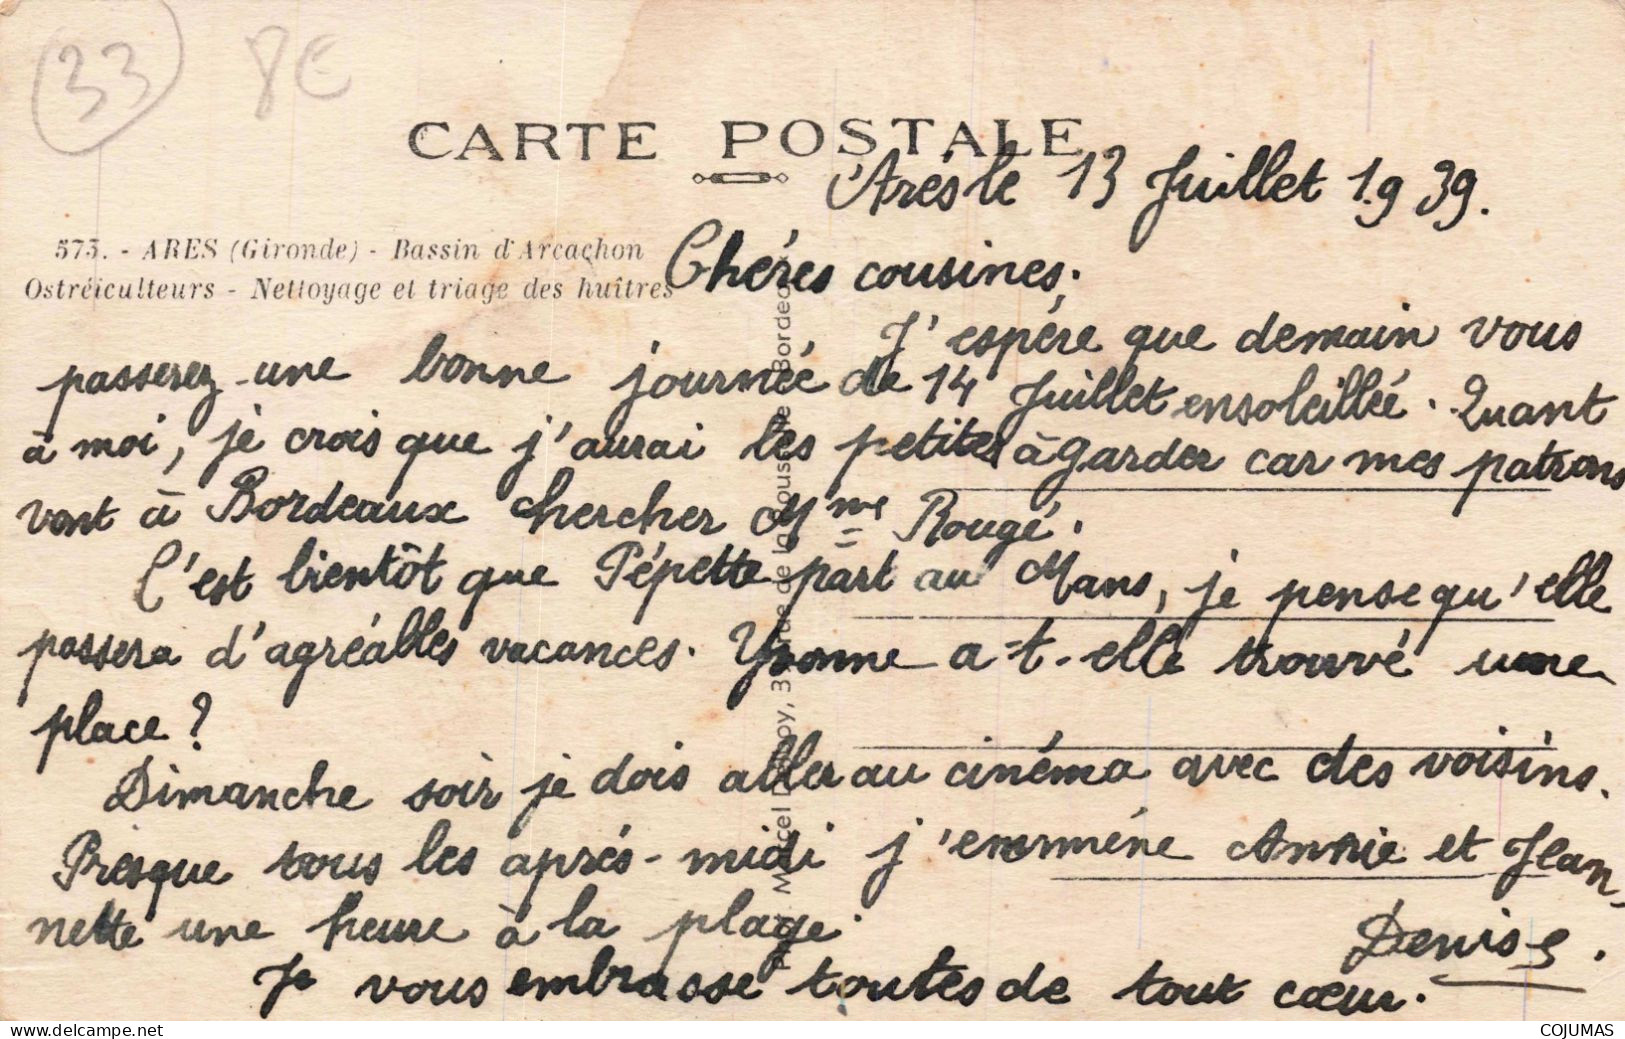 33
8€
CARTE POSTALE
Arès le 13 Juillet 1.9 39.
573. - ARES (Gironde) - Bassin d'Arcachon
Ostréiculteurs - Nettoyage et triage des huîtres
Chéres cousines;
J'espére que demain vous
passerez une bonne journée de 14 Juillet ensoleillée. Quant
à moi, je crois que j'aurai les petites à garder car mes patrons
vont à Bordeaux chercher Mme Rougé.
C'est bientôt que Pépette part au Mans, je pense qu'elle
passera d'agréables vacances. Yvonne a-t-elle trouvé une
place?
Dimanche soir je dois aller au cinéma avec des voisins.
Presque tous les aprés-midi j'emméne Annie et Jean-
nette une heure à la plage.
Denise.
Je vous embrasse toutes de tout cœur.
Marcel 3 de la Bordeaux
delcampe.net
COJUMAS